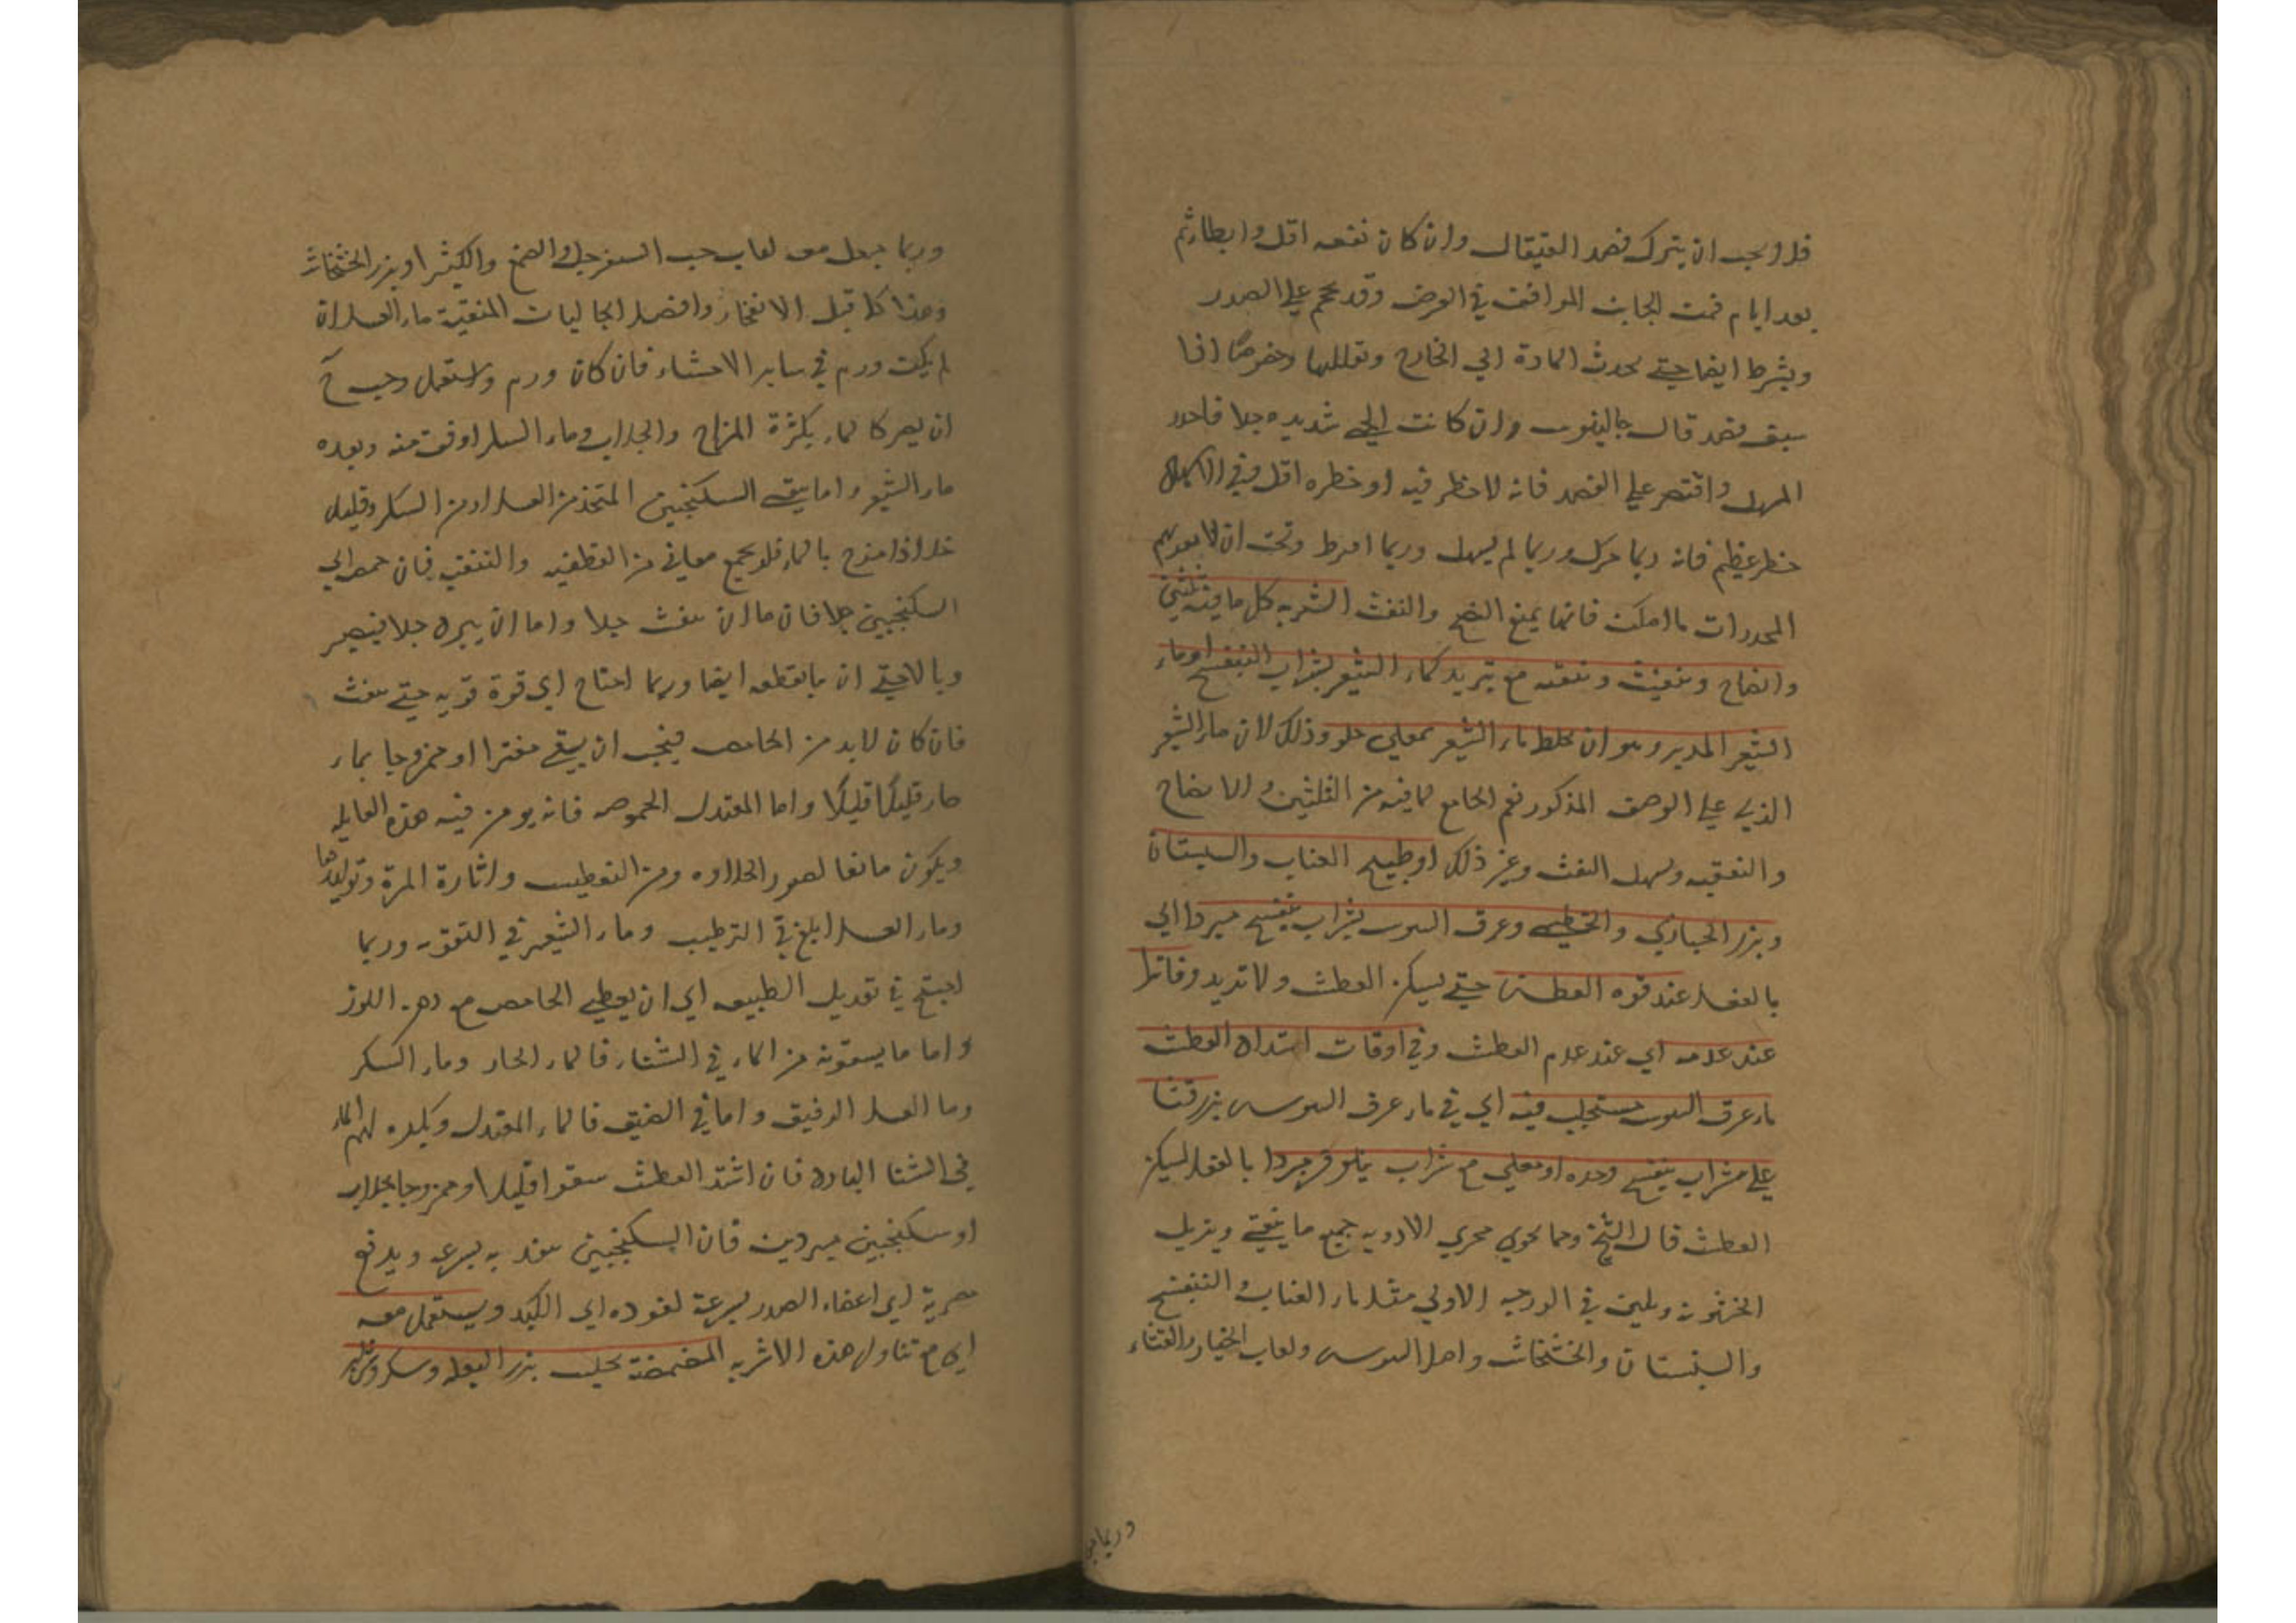 فلا يجب ان يترك فصد القيفال وان كان نفعه اقل وابطا ثم
بعد ايام فمن الجانب الموافق في الوضع وقد يحجم علي الصدر
ويشرط ايضا حتي يحدث المادة الي الخارج وتقللها وخصوصا اذا
سبق فصد قال جالينوس وان كانت الحمي شديده جدا فاحذر
المسهل واقتصر علي الفصد فانه لا خطر فيه او خطره اقل وفي الاسهال
خطر عظيم فانه ربما حرك وربما لم يسهل وربما افرط ان لا
المخدرات ما امكن فانها يمنع النضج والنفث الشربه كل ما فيه تليين
وانضاج وتنقيه مع تبريد كماء الشعير بشراب البنفسج او ماء
الشعير المدبر وهو ان يخلط ماء الشعير بمغلي حلو وذلك لان ماء الشعير
الذي علي الوصف المذكور نعم الجامع لما فيه من التليين والانضاج
والتنقيه وتسهيل النفث وغير ذلك او طبيخ العناب والسبستان
وبزر الخبازي والخطمي وعرق السوس بشراب بنفسج مبردا اي
بالفعل عند قوه العطش حتي يسكن العطش ولا تزيد وفاترا
عند عدمه اي عند عدم العطش وفي اوقات اشتداد العطش
ماء عرق السوس مستحلب فيه اي في ماء عرق السوس بزر قثا
علي شراب بنفسج وحده او مغلي مع شراب نيلوفر مبردا بالفعل ليسكن
العطش قال الشيخ ومما يجري مجري الادويه جميع ما ينقي ويزيل
الخشونه ويلين في الدرجه الاولي مثل ماء العناب والبنفسج
والسبستان والخشخاش واصل السوس ولعاب الخيار والقثاء
وربما
وربما جعل معه لعاب حب السفرجل والصمغ والكثيرا وبزر الخشخاش
وهذا كله قبل الانفجار وافضل الجاليات المنقية ماء العسل ان
لم يكن ورم في ساير الاحشاء فان كان ورم واستعمل وجب ح
ان يصير كالماء بكثرة المزاج والجلاب وماء السكر اوفق منه وبعده
ماء الشعير واما سقي السكنجبين المتخذ من العسل او من السكر وقليل
خل اذا مزج بالماء فلا يجمع معاني من التقطيع والتنقيه فان حمض
السكنجبين جدا فان ما ان ينفث جدا واما ان يبرد جدا فيصير
وبالا حتي ان ما يقطعه ايضا وربما احتاج الي قوة قويه حتي ينفث
فان كان لا بد من الحامض فيجب ان يسقي مفترا او ممزوجا بماء
حار قليلا قليلا واما المعتدل الحموضه فانه يومن فيه هذه الغايله
ويكون مانعا لضرر الحلاوه ومن التعطيش واثارة المرة وتوليدها
وماء العسل ابلغ في الترطيب وماء الشعير في التقويه وربما
احتيج في تعديل الطبيعه اي ان يعطي الحامض مع دهن اللوز
واما ما يسقونه من الماء في الشتاء فالماء الحار وماء السكر
وما العسل الرقيق واما في الصيف فالماء المعتدل ويكره لهم الماء
في الشتا البارد فان اشتد العطش سقوا قليلا او ممزوجا بجلاب
او سكنجبين مبردين فان السكنجبين ينفذ به بسرعه ويدفع
مضرته اي اعضاء الصدر بسرعة نفوده اي الكبد ويستعمل معه
اي مع تناول هذه الاشربه المضمضة بحليب بزر البقله وسكر